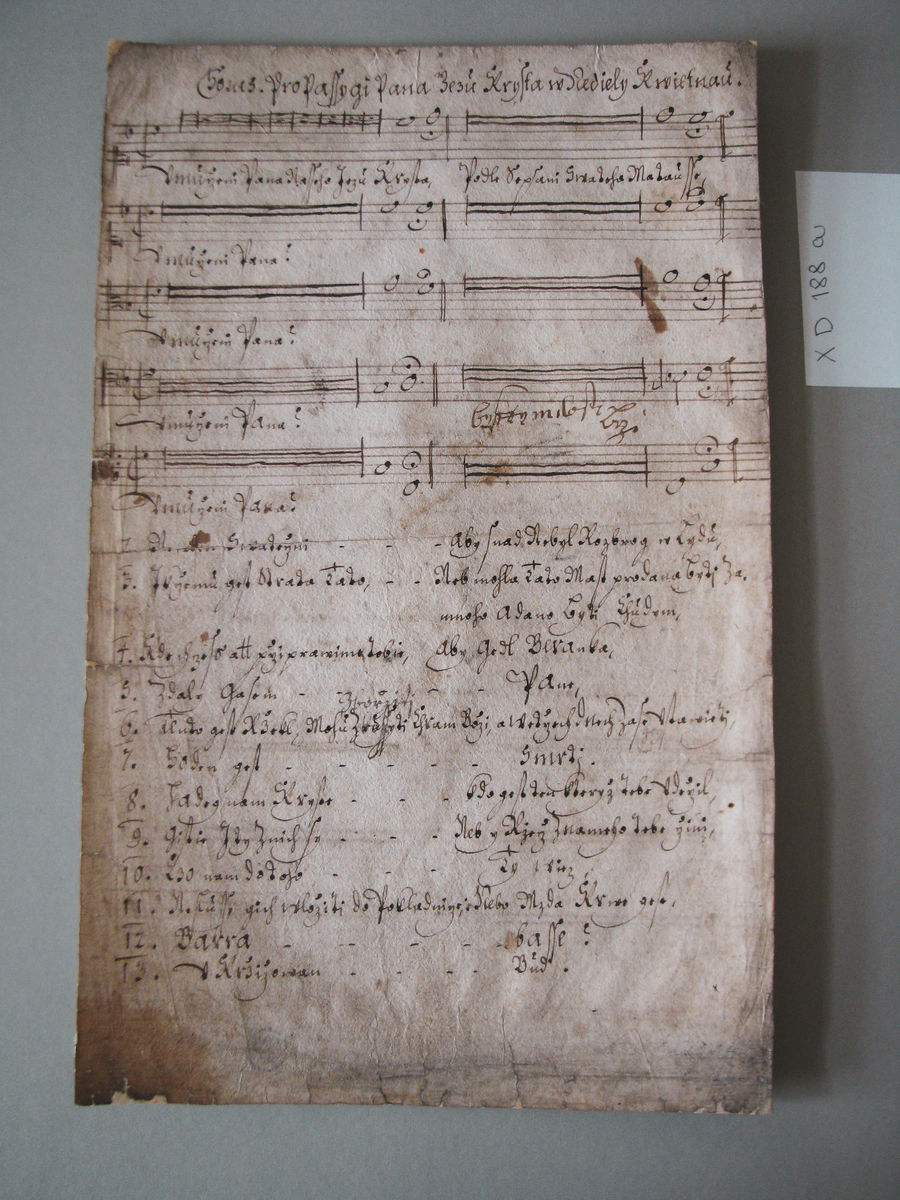 Chorus. Pro Passygi Pana Jezu Krysta w Nediely Kwietnau.
Vmučeni Pana Nasseho Jezu Krysta, Podle Sepsani Swateho Matausse,
Vmučeni Pana
Vmučeni Pana
Vmučeni Pana
Vmučeni Pana
2. Swateyni - - - Aby snad Nebyl Rozbrog w Lydu,
3. K čemu gest Strata Tato, - - Neb mohla Tato Mast prodana byti Za
mnoho A dano byti Chudym,
4. Kde chczess att prziprawime tobie, Aby Gedl Beranka,
5. Zdaliz Gasem - - - - PAne,
6. Tento gest Rzekl, Mohu Zrussyti Chram Bozi, a we trzech dnech zase Vstawieti,
zborziti
7. Hoden gest - - - - - Smrti.
8. Hadeg nam Kryste - - - kdo gest ten kteryz tebe Vderzil,
9. Gistie I ty Znich Sy - - - Neb y Rzecz Znameho tebe czini,
10. Czo nam do toho - - - - Ty wiez
11. Neslussi gich wloziti do Pokladnicze Nebo Mzda Krwe gest,
12. BaRRa - - - - - basse
13. VKrzizowan - - - - Bud.
XD 188 a